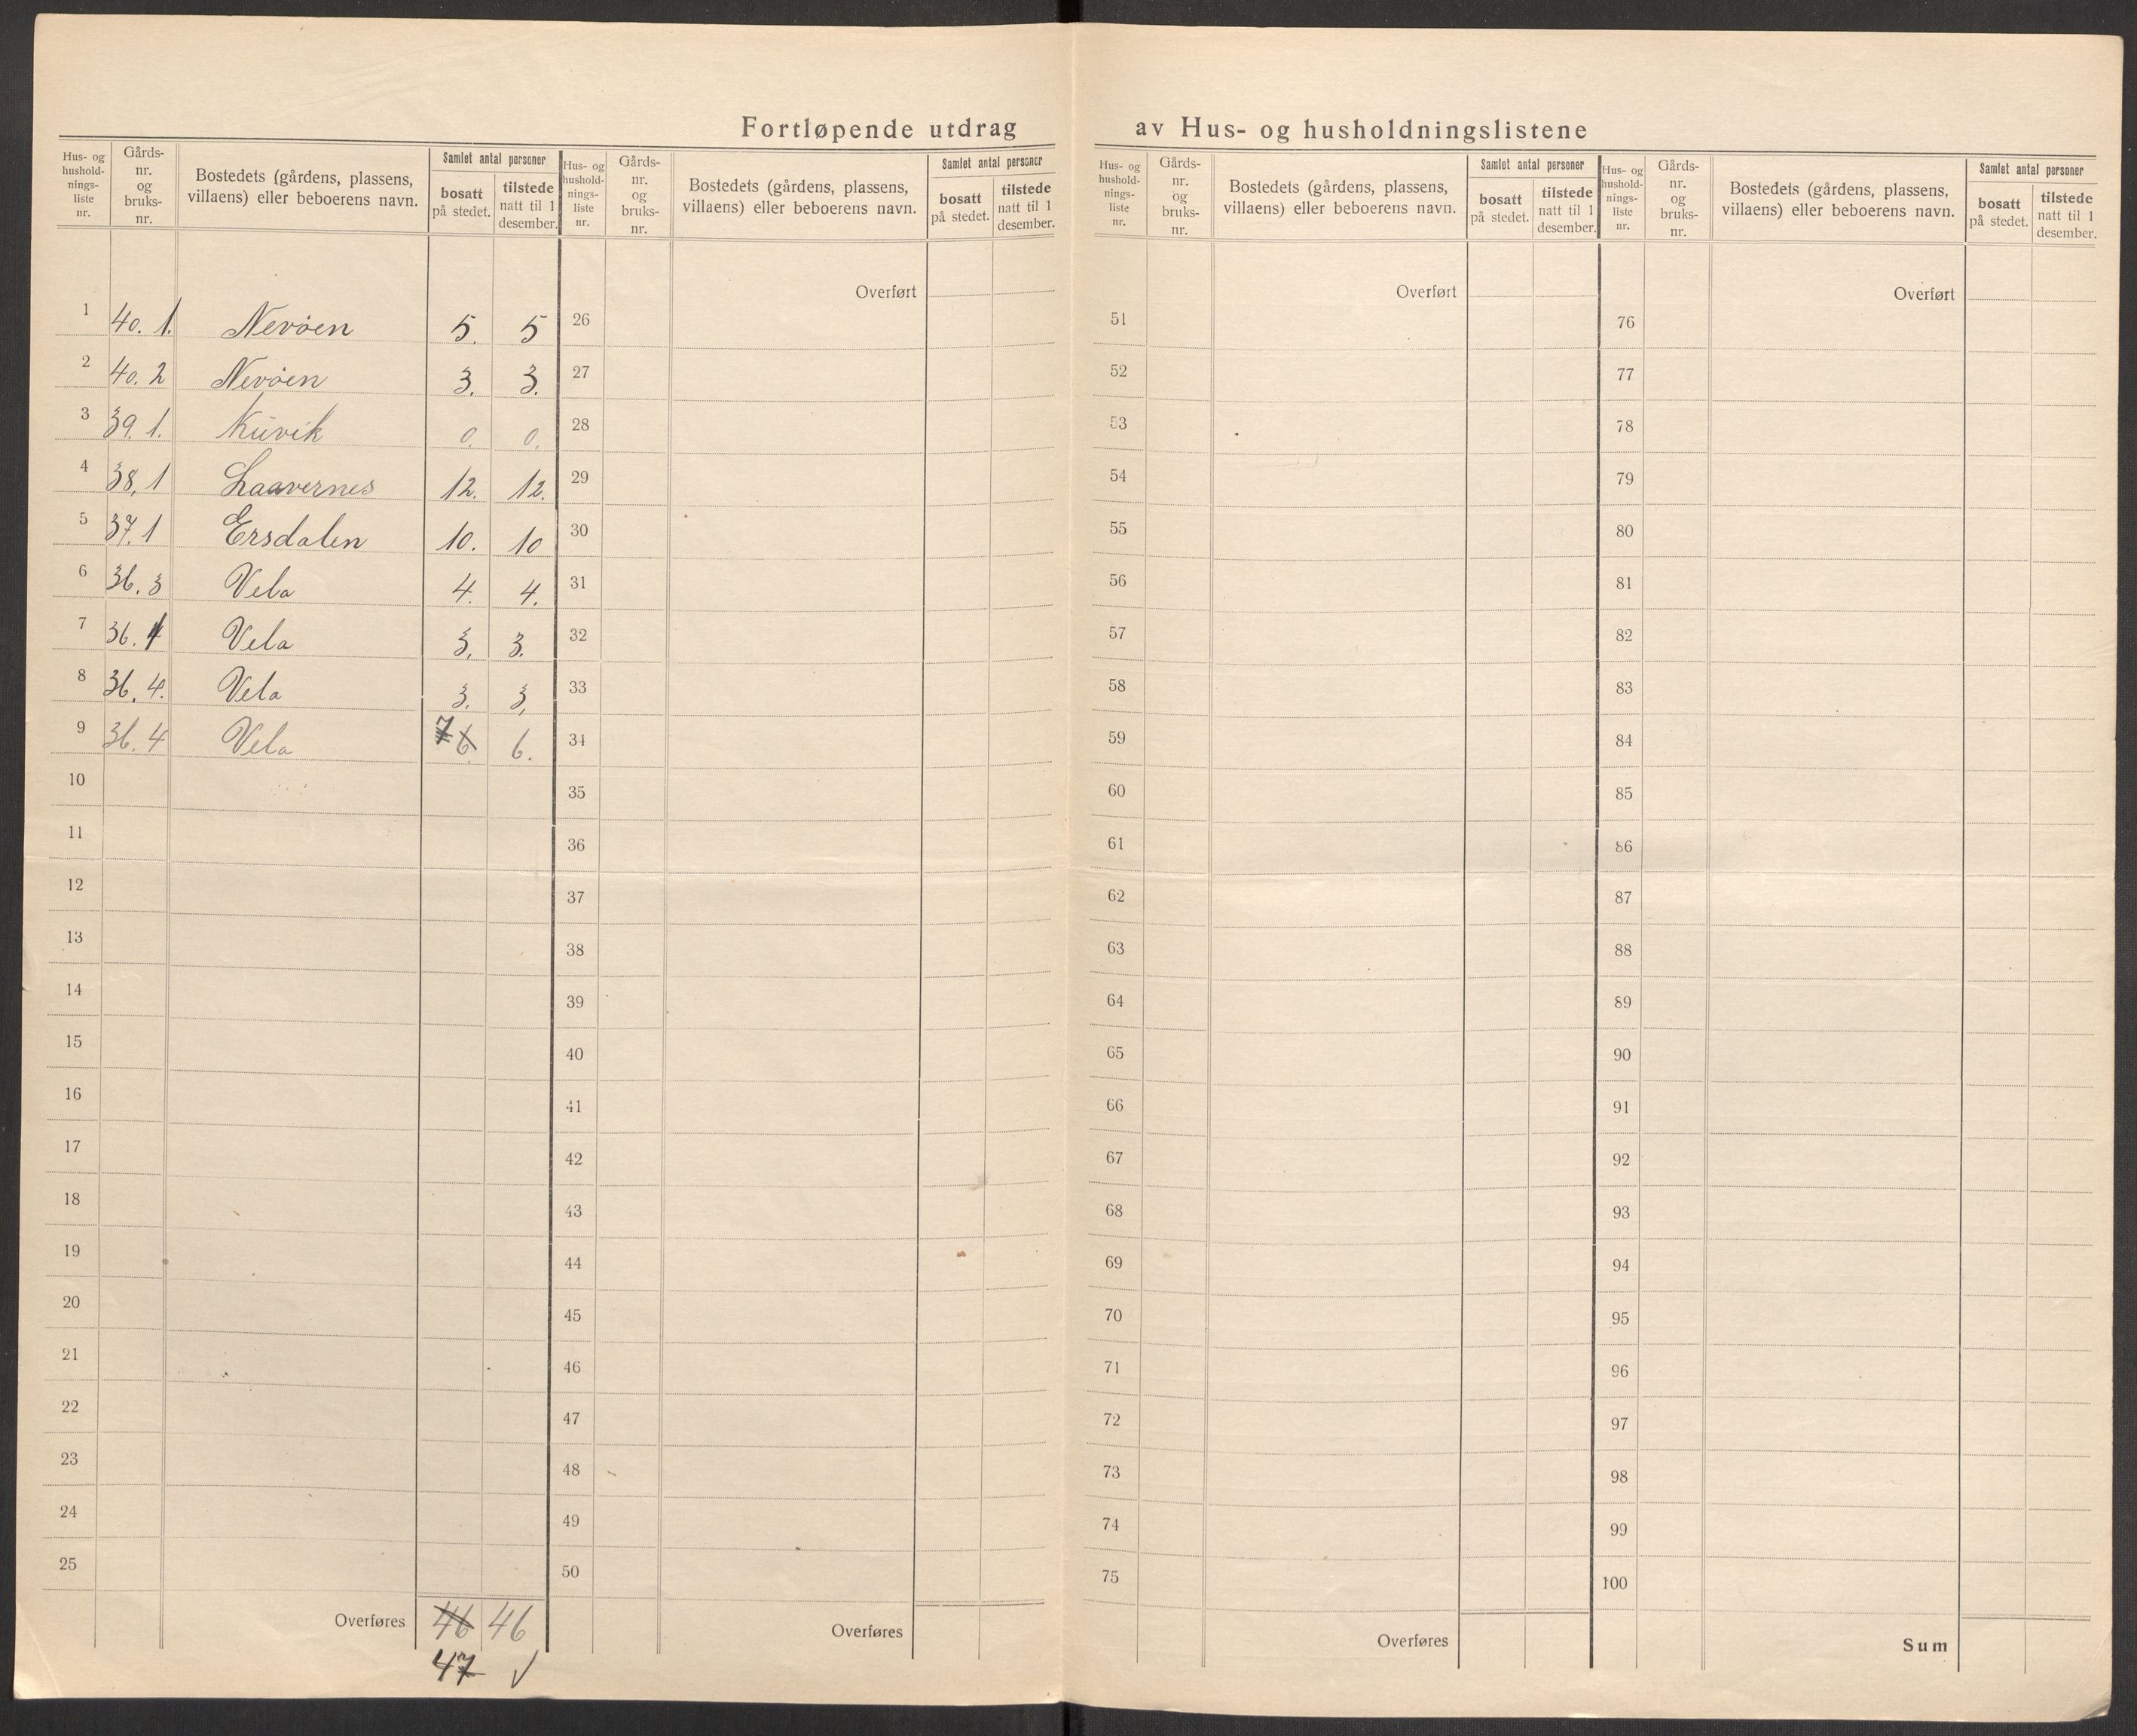 Fortløpende utdrag av Hus- og husholdningslistene
Hus- og
hushold-
nings-
liste
nr.
Gårds-
nr.
og
bruks-
nr.
Bostedets (gårdens, plassens,
villaens) eller beboerens navn.
Samlet antal personer
bosatt
på stedet.
tilstede
natt til 1
desember.
1 40. 1. Nevøen 5. 5
2 40. 2 Nevøen 3. 3.
3 39. 1. Kuvik 0. 0.
4 38, 1 Laavernes 12. 12.
5 37. 1 Ersdalen 10. 10
6 36. 3 Vela 4. 4.
7 36. 1 Vela 3. 3.
8 36. 4. Vela 3. 3,
9 36. 4 Vela 7 6. 6.
10
11
12
13
14
15
16
17
18
19
20
21
22
23
24
25
Overføres 46 46
47 √
Hus- og
hushold-
nings-
liste
nr.
Gårds-
nr.
og
bruks-
nr.
Bostedets (gårdens, plassens,
villaens) eller beboerens navn.
Samlet antal personer
bosatt
på stedet.
tilstede
natt til 1
desember.
Overført
26
27
28
29
30
31
32
33
34
35
36
37
38
39
40
41
42
43
44
45
46
47
48
49
50
Overføres
Hus- og
hushold-
nings-
liste
nr.
Gårds-
nr.
og
bruks-
nr.
Bostedets (gårdens, plassens,
villaens) eller beboerens navn.
Samlet antal personer
bosatt
på stedet.
tilstede
natt til 1
desember.
Overført
51
52
53
54
55
56
57
58
59
60
61
62
63
64
65
66
67
68
69
70
71
72
73
74
75
Overføres
Hus- og
hushold-
nings-
liste
nr.
Gårds-
nr.
og
bruks-
nr.
Bostedets (gårdens, plassens,
villaens) eller beboerens navn.
Samlet antal personer
bosatt
på stedet.
tilstede
natt til 1
desember.
Overført
76
77
78
79
80
81
82
83
84
85
86
87
88
89
90
91
92
93
94
95
96
97
98
99
100
Sum